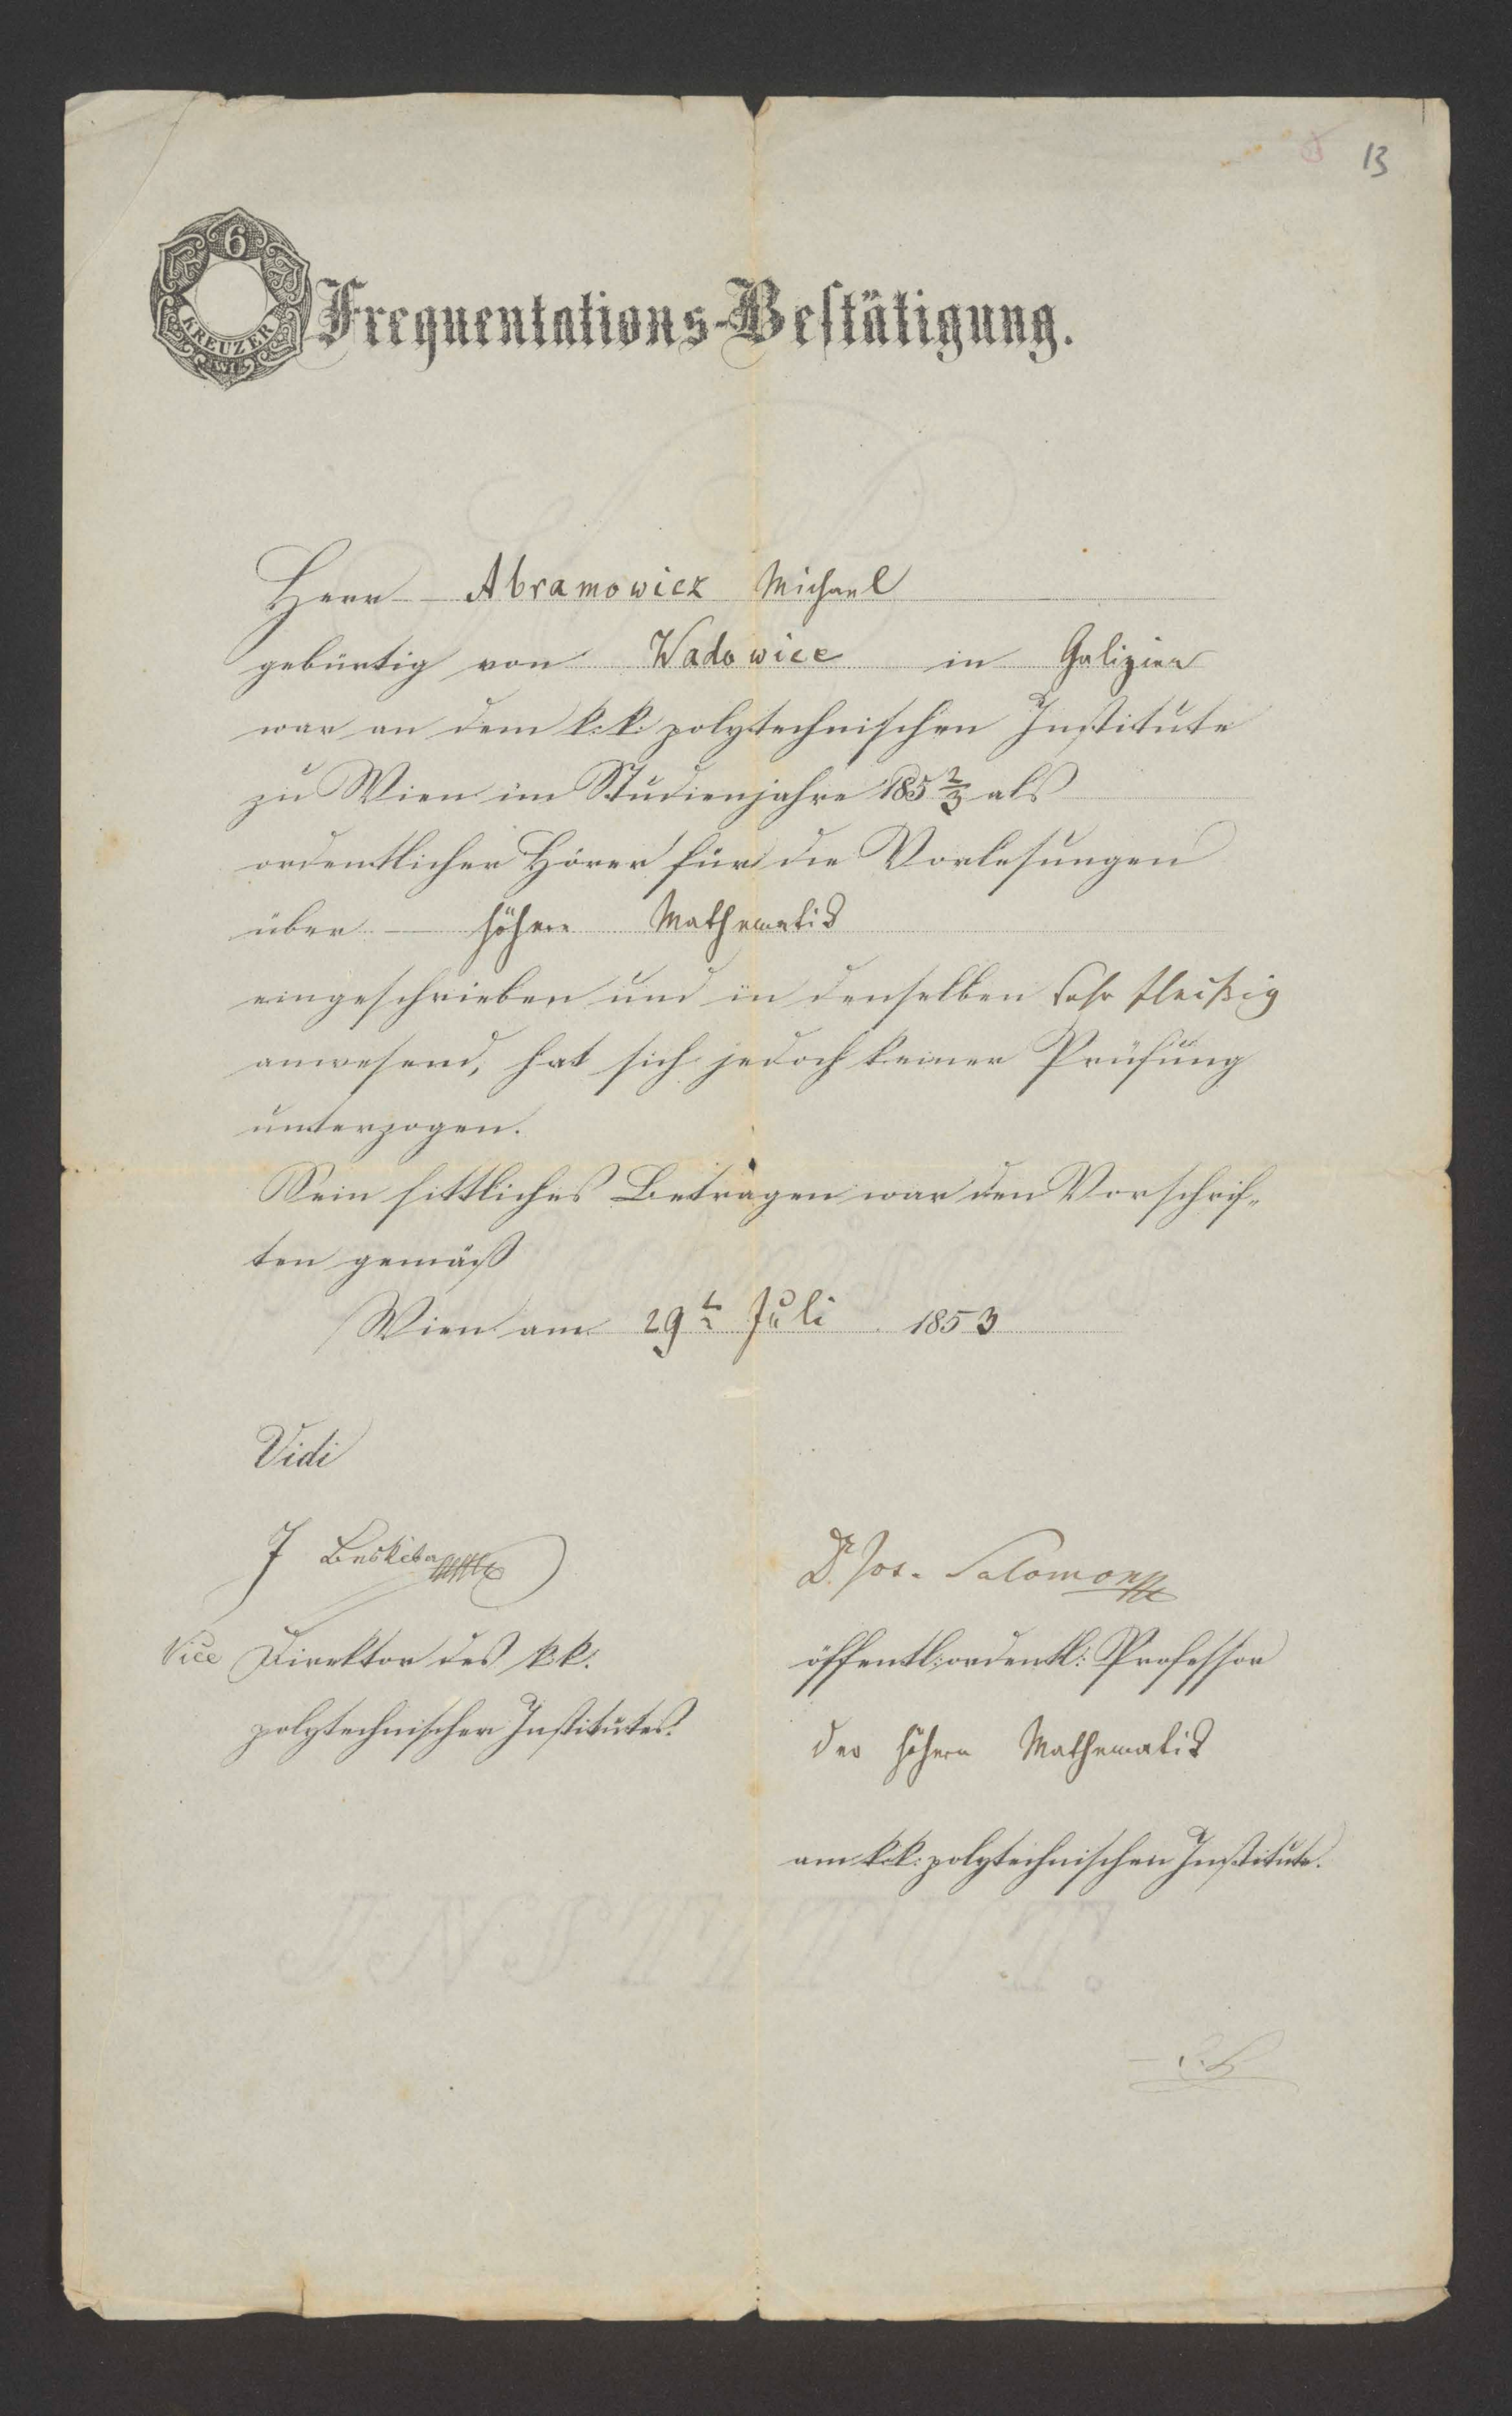 13
6
KREUZER
WI
Frequentations-Bestätigung.
Herr Abramowicz Michael
gebürtig von Wadowice in Galizien
war an dem k: k: polytechnischen Institute
zu Wien im Studienjahre 185 2/3 als
ordentlicher Hörer für die Vorlesungen
über höhere Mathematik
eingeschrieben und in denselben sehr fleißig
anwesend, hat sich jedoch keiner Prüfung
unterzogen.
Sein sittliches Betragen war den Vorschrif-
ten gemäß
Wien am 29t Juli 1853
Vidi
J Beskiba
Dr. Jos. Salomon
Vice Direktor des k: k:
öffentl: ordentl: Professor
polytechnischen Institutes.
der höhern Mathematik
am k: k: polytechnischen Institute.